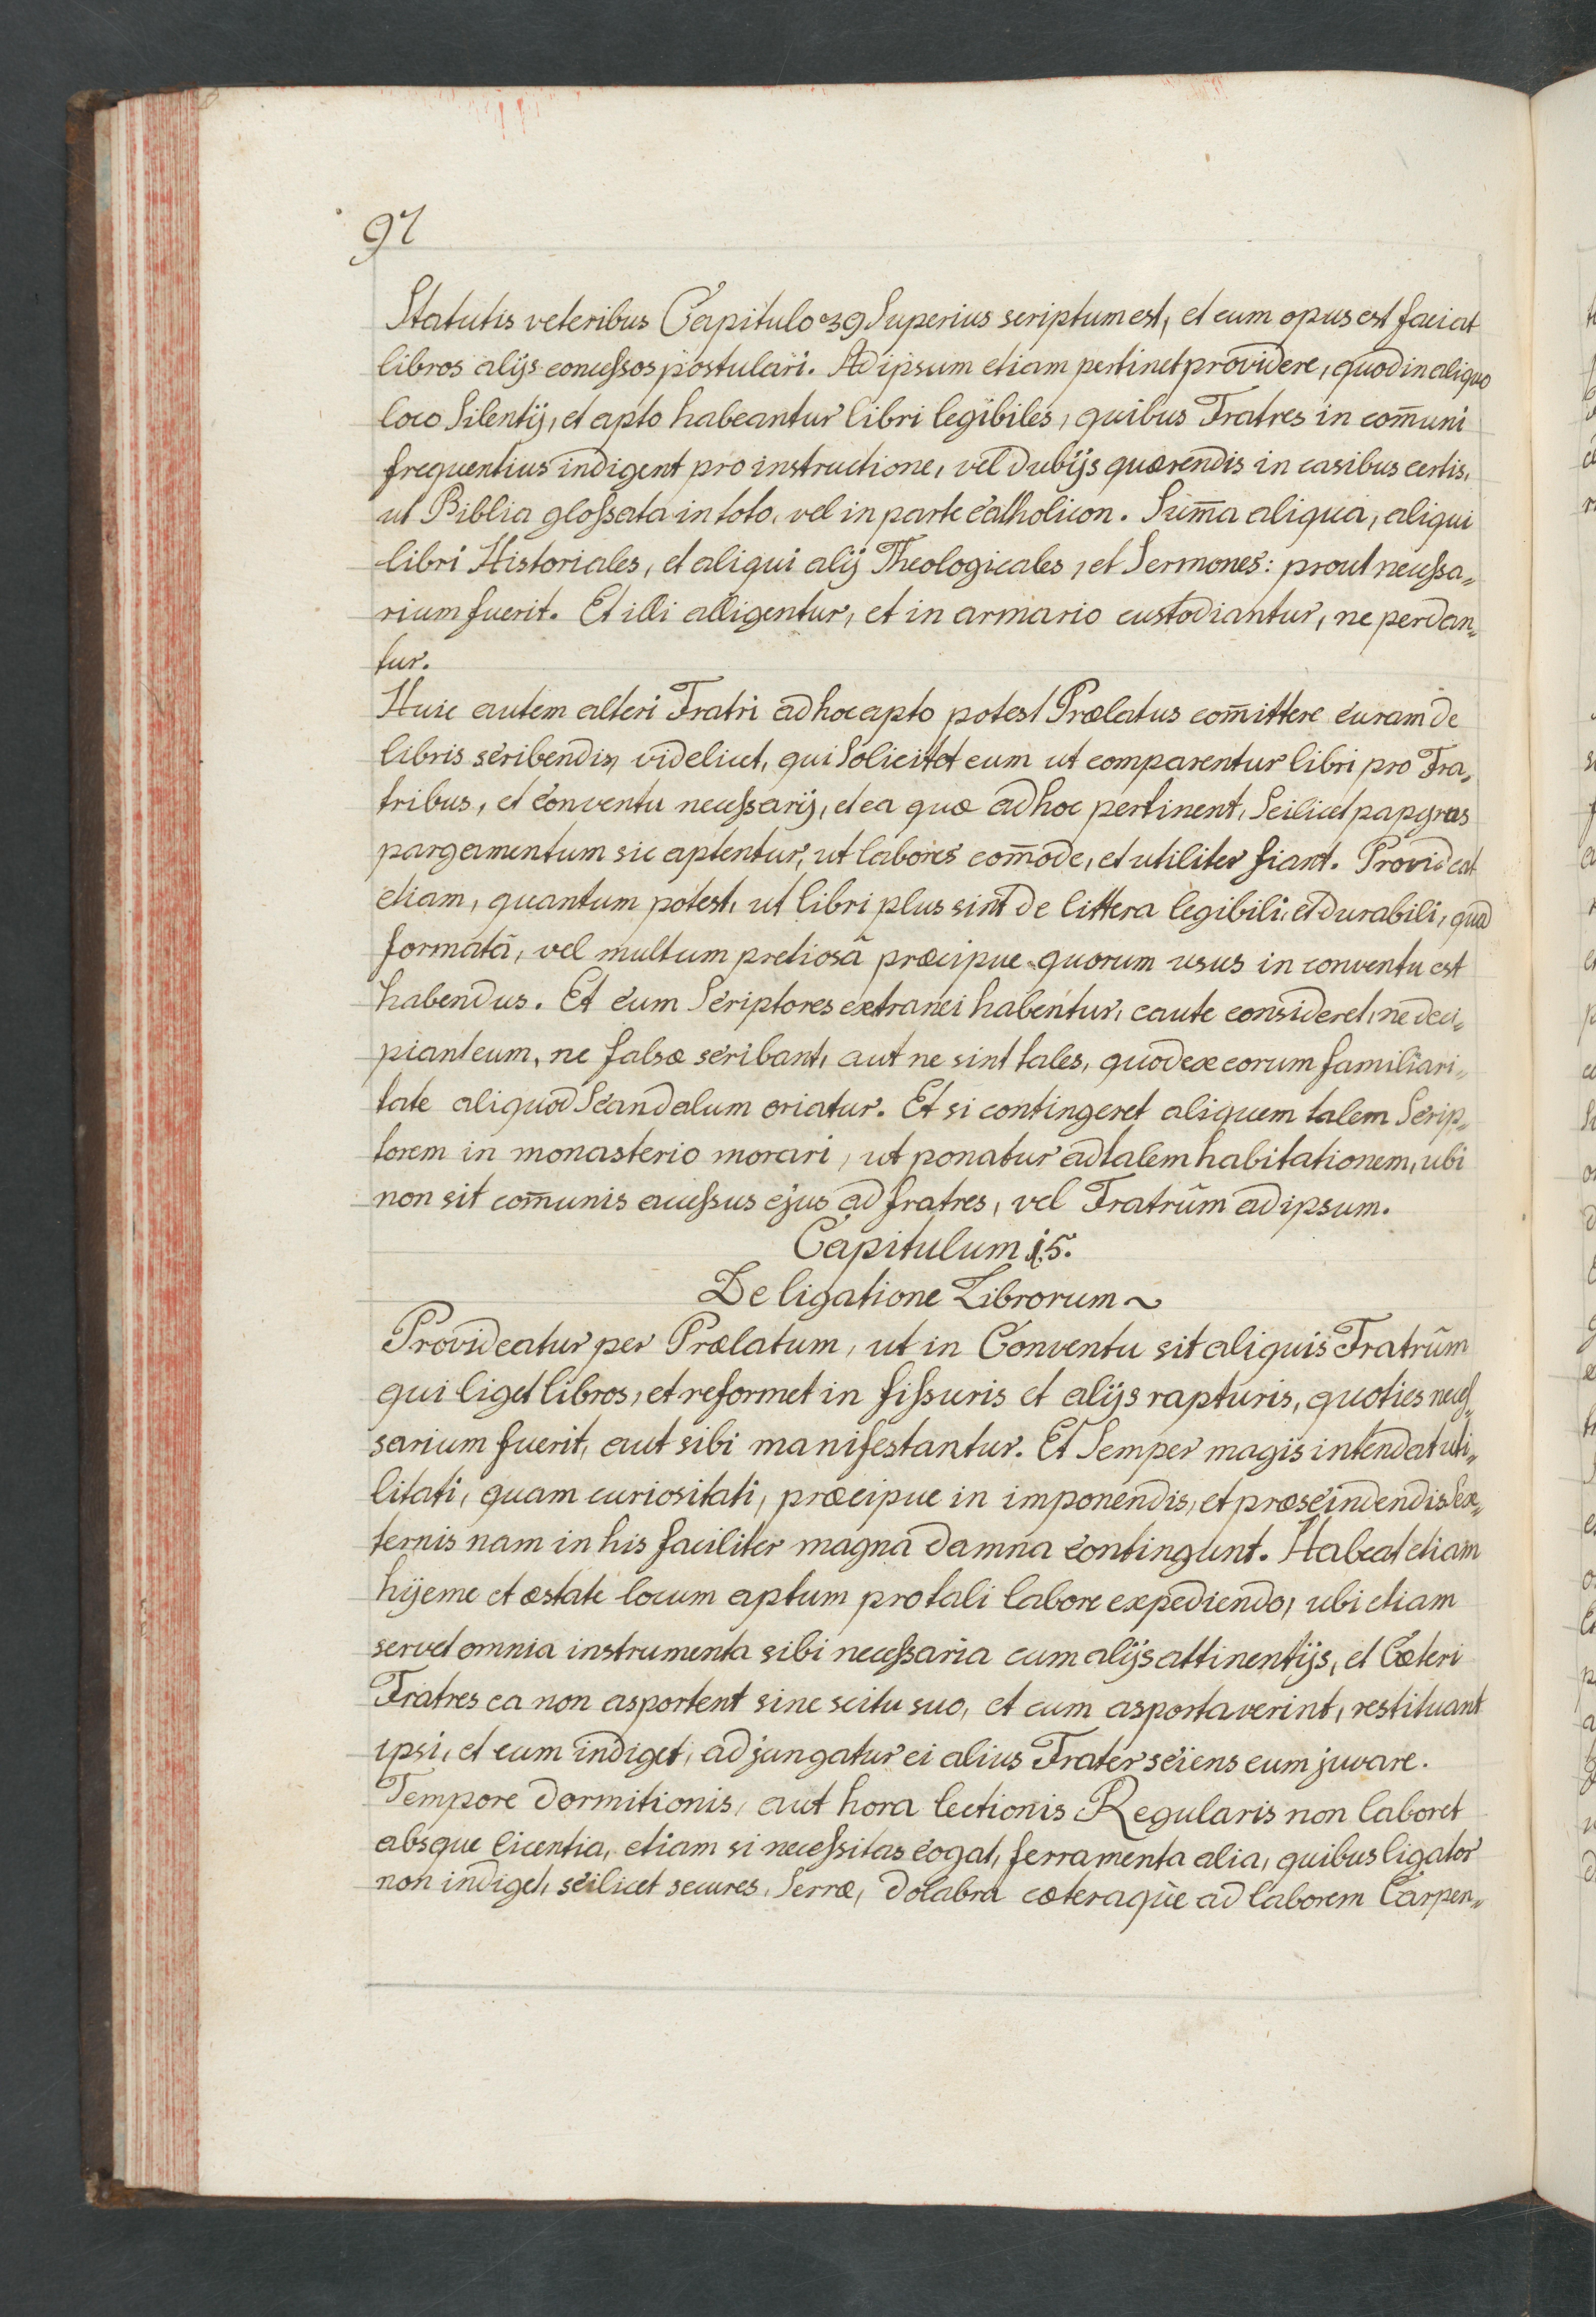 92
Statutis veteribus Capitulo 39 Superius scriptum est, et cum opus est faciat
libros alijs concessos postulari. Ad ipsum etiam pertinet providere, quod in aliquo
loco Silentij, et apto habeantur libri legibiles, quibus Fratres in com̄uni
frequentius indigent pro instructione, vel dubijs quærendis in casibus certis,
ut Biblia glossata in toto, vel in parte catholicon. Sum̄a aliqua, aliqui
libri Historiales, et aliqui alij Theologicales, et Sermones: prout necessa„
rium fuerit. Et illi alligentur, et in armario custodiantur, ne perdan„
tur.
Huic autem alteri Fratri ad hoc apto potest Prælatus com̄ittere curam de
libris scribendis, videlicet, qui Solicitet eum ut comparentur libri pro Fra„
tribus, et conventu necessarij, et ea quæ ad hoc pertinent, Scilicet papyrus
pargamentum sic aptentur, ut labores com̄ode, et utiliter fiant. Provideat
etiam, quantum potest, ut libri plus sint de littera legibili, et durabili, quā
formatâ, vel multum pretiosâ præcipue quorum usus in conventu est
habendus. Et cum Scriptores extranei habentur, caute consideret, ne deci„
piant eum, ne falsæ scribant, aut ne sint tales, quod ex eorum familiari„
tate aliquod Scandalum oriatur. Et si contingeret aliquem talem Scrip„
torem in monasterio morari, ut ponatur ad talem habitationem, ubi
non sit com̄unis accessus ejus ad fratres, vel Fratrûm ad ipsum.
Capitulum 15.
De ligatione Librorum ~
Provideatur per Prælatum, ut in Conventu sit aliquis Fratrûm
qui liget libros, et reformet in fissuris et alijs rapturis, quoties neces„
sarium fuerit, aut sibi manifestantur. Et Semper magis intendat uti„
litati, quam curiositati, præcipue in imponendis, et præscindendis Sex„
ternis nam in his faciliter magna damna contingunt. Habeat etiam
hijeme et æstate locum aptum pro tali labore expediendo, ubi etiam
servet omnia instrumenta sibi necessaria cum alijs attinentijs, et Cæteri
Fratres ea non asportent sine scitu suo, et cum asportaverint, restituant
ipsi, et cum indiget, adjungatur ei alius Frater sciens eum juvare.
Tempore dormitionis, aut hora lectionis Regularis non laboret
absque licentia, etiam si necessitas cogat, ferramenta alia, quibus ligator
non indiget, scilicet secures, Serræ, dolabra cæteraq̀ue ad laborem Carpen„